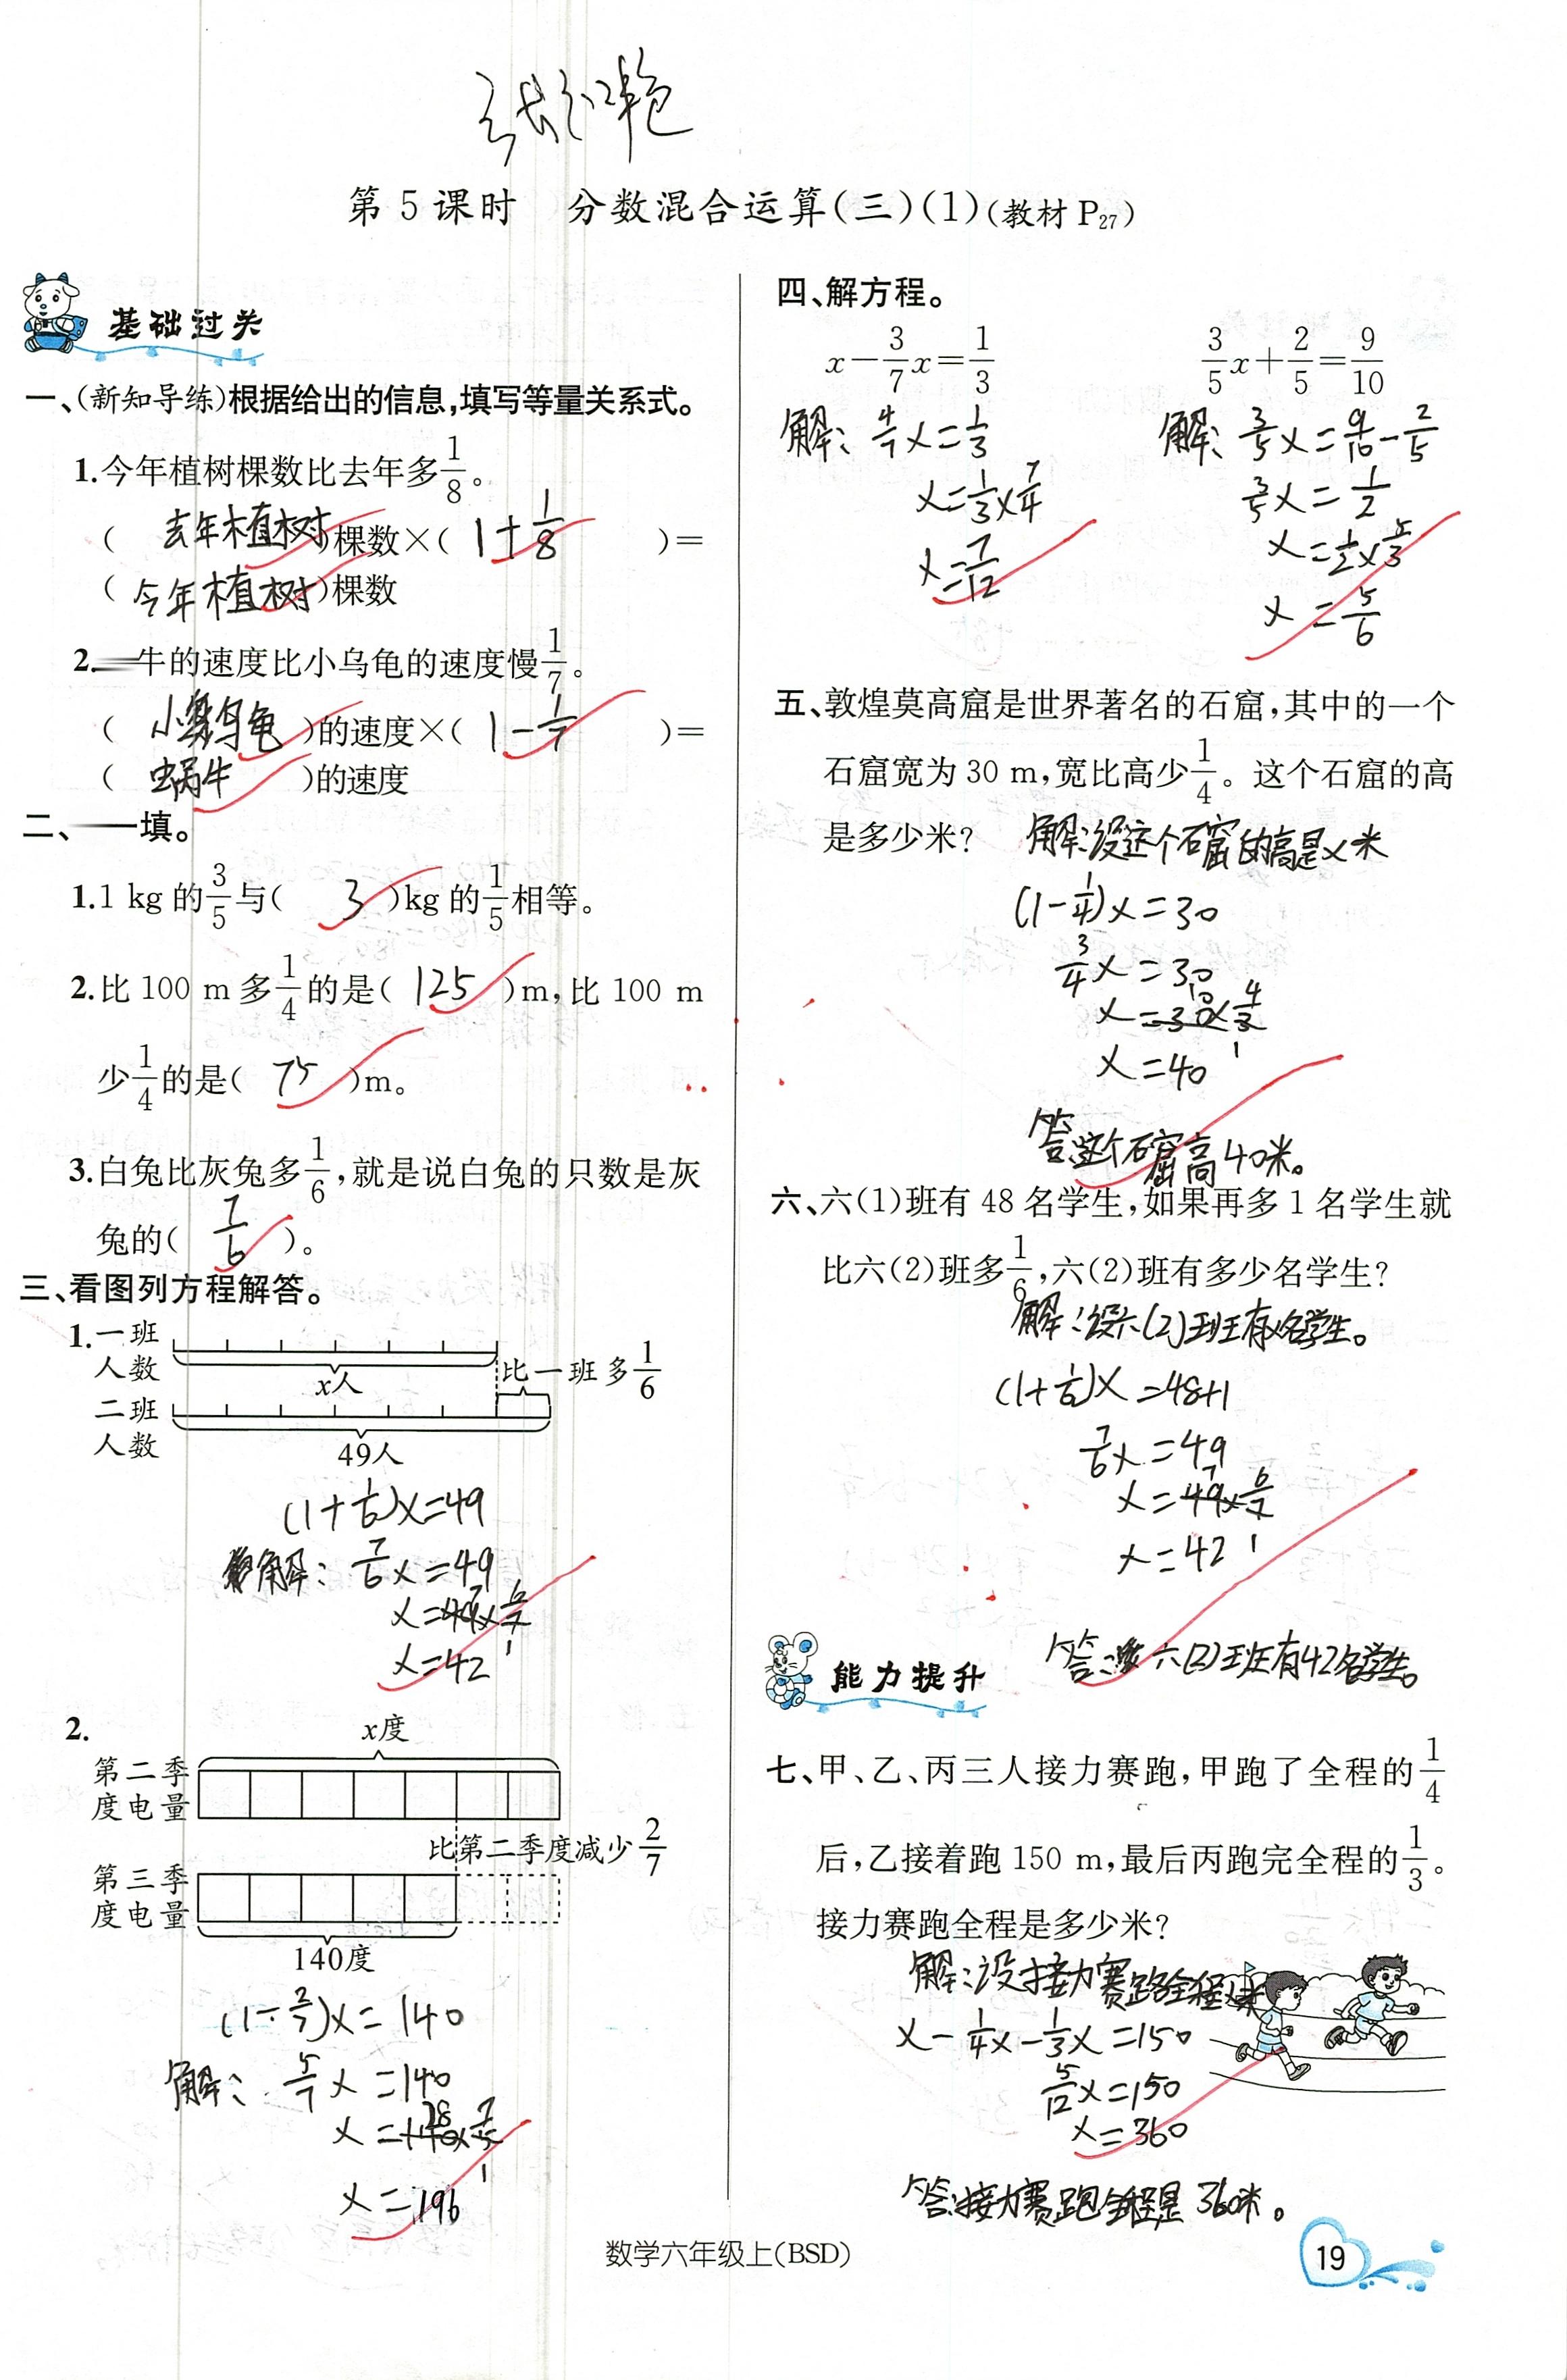 第5课时 分数混合运算(三)(1)(教材P27)
基础过关
一、(新知导练)根据给出的信息,填写等量关系式。
1.今年植树棵数比去年多1/8。
( 去年植树 )棵数×( 1+1/8 )=
( 今年植树 )棵数
2.牛的速度比小乌龟的速度慢1/7。
( 小乌龟 )的速度×( 1-1/7 )=
( 蜗牛 )的速度
二、填。
1.1 kg的3/5与( 3 )kg的1/5相等。
2.比100 m多1/4的是( 125 )m,比100 m
少1/4的是( 75 )m。
3.白兔比灰兔多1/6,就是说白兔的只数是灰
兔的( 7/6 )。
三、看图列方程解答。
1.一班
人数
x人
比一班多1/6
二班
人数
49人
(1+1/6)x=49
解: 7/6x=49
x=49×6/7
7
1
x=42
2.
x度
第二季
度电量
比第二季度减少2/7
第三季
度电量
140度
(1-2/7)x=140
解: 5/7x=140
28
x=140×7/5
1
x=196
四、解方程。
x-3/7x=1/3 3/5x+2/5=9/10
解: 4/7x=1/3 解: 3/5x=9/10-2/5
x=1/3×7/4 3/5x=1/2
x=7/12 x=1/2×5/3
x=5/6
五、敦煌莫高窟是世界著名的石窟,其中的一个
石窟宽为30 m,宽比高少1/4。这个石窟的高
是多少米? 解:设这个石窟的高是x米
(1-1/4)x=30
3/4x=30
10
x=30×4/3
1
x=40
答:这个石窟高40米。
六、六(1)班有48名学生,如果再多1名学生就
比六(2)班多1/6,六(2)班有多少名学生?
解:设六(2)班有x名学生。
(1+1/6)x=48+1
7/6x=49
7
x=49×6/7
1
x=42
答: 六(2)班有42名学生。
能力提升
七、甲、乙、丙三人接力赛跑,甲跑了全程的1/4
后,乙接着跑150 m,最后丙跑完全程的1/3。
接力赛跑全程是多少米?
解:设接力赛跑全程x米
x-1/4x-1/3x=150
5/12x=150
x=360
答:接力赛跑全程是360米。
数学六年级上(BSD)
19